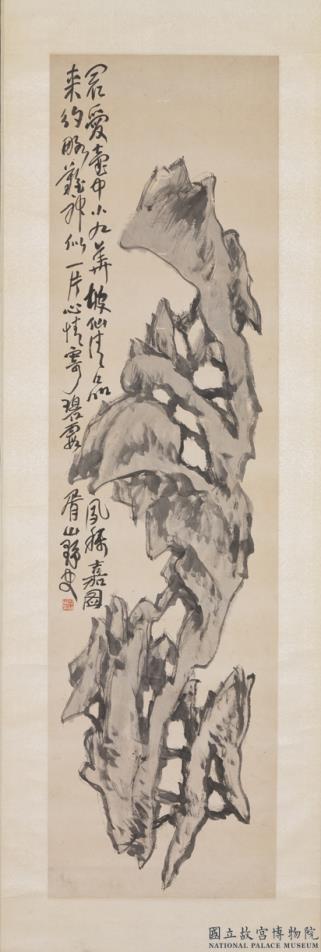 君愛壺中小九華 坡仙清品 鳳穉嘉圖
來約略難神似 一片心情寄碧霞 胥山野史
國立故宮博物院
NATIONAL PALACE MUSEUM